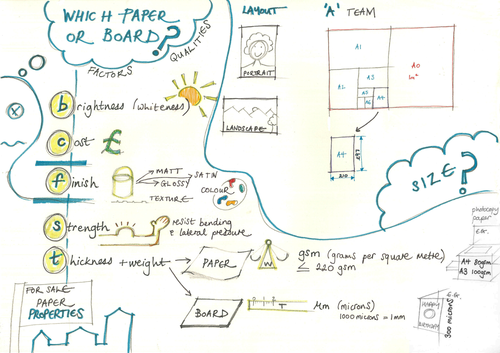 WHICH PAPER
OR BOARD ?
FACTORS
QUALITIES
brightness (whiteness)
cost £
finish
MATT
GLOSSY
SATN
TEXTURE
COLOUR
strength
resist bending
& lateral pressure
thickness + weight
PAPER
W
gsm (grams per square metre)
≤ 220 gsm
BOARD
T
Mm (microns)
1000 microns = 1mm
FOR SALE
PAPER
PROPERTIES
LAYOUT
PORTRAIT
LANDSCAPE
'A' TEAM
A1
A0
1m²
A3
A4
A4
297
210
SIZE ?
photocopy
paper
E.G.
A4 80gsm
A3 100gsm
E.G.
HAPPY
BIRTHDAY
300 microns